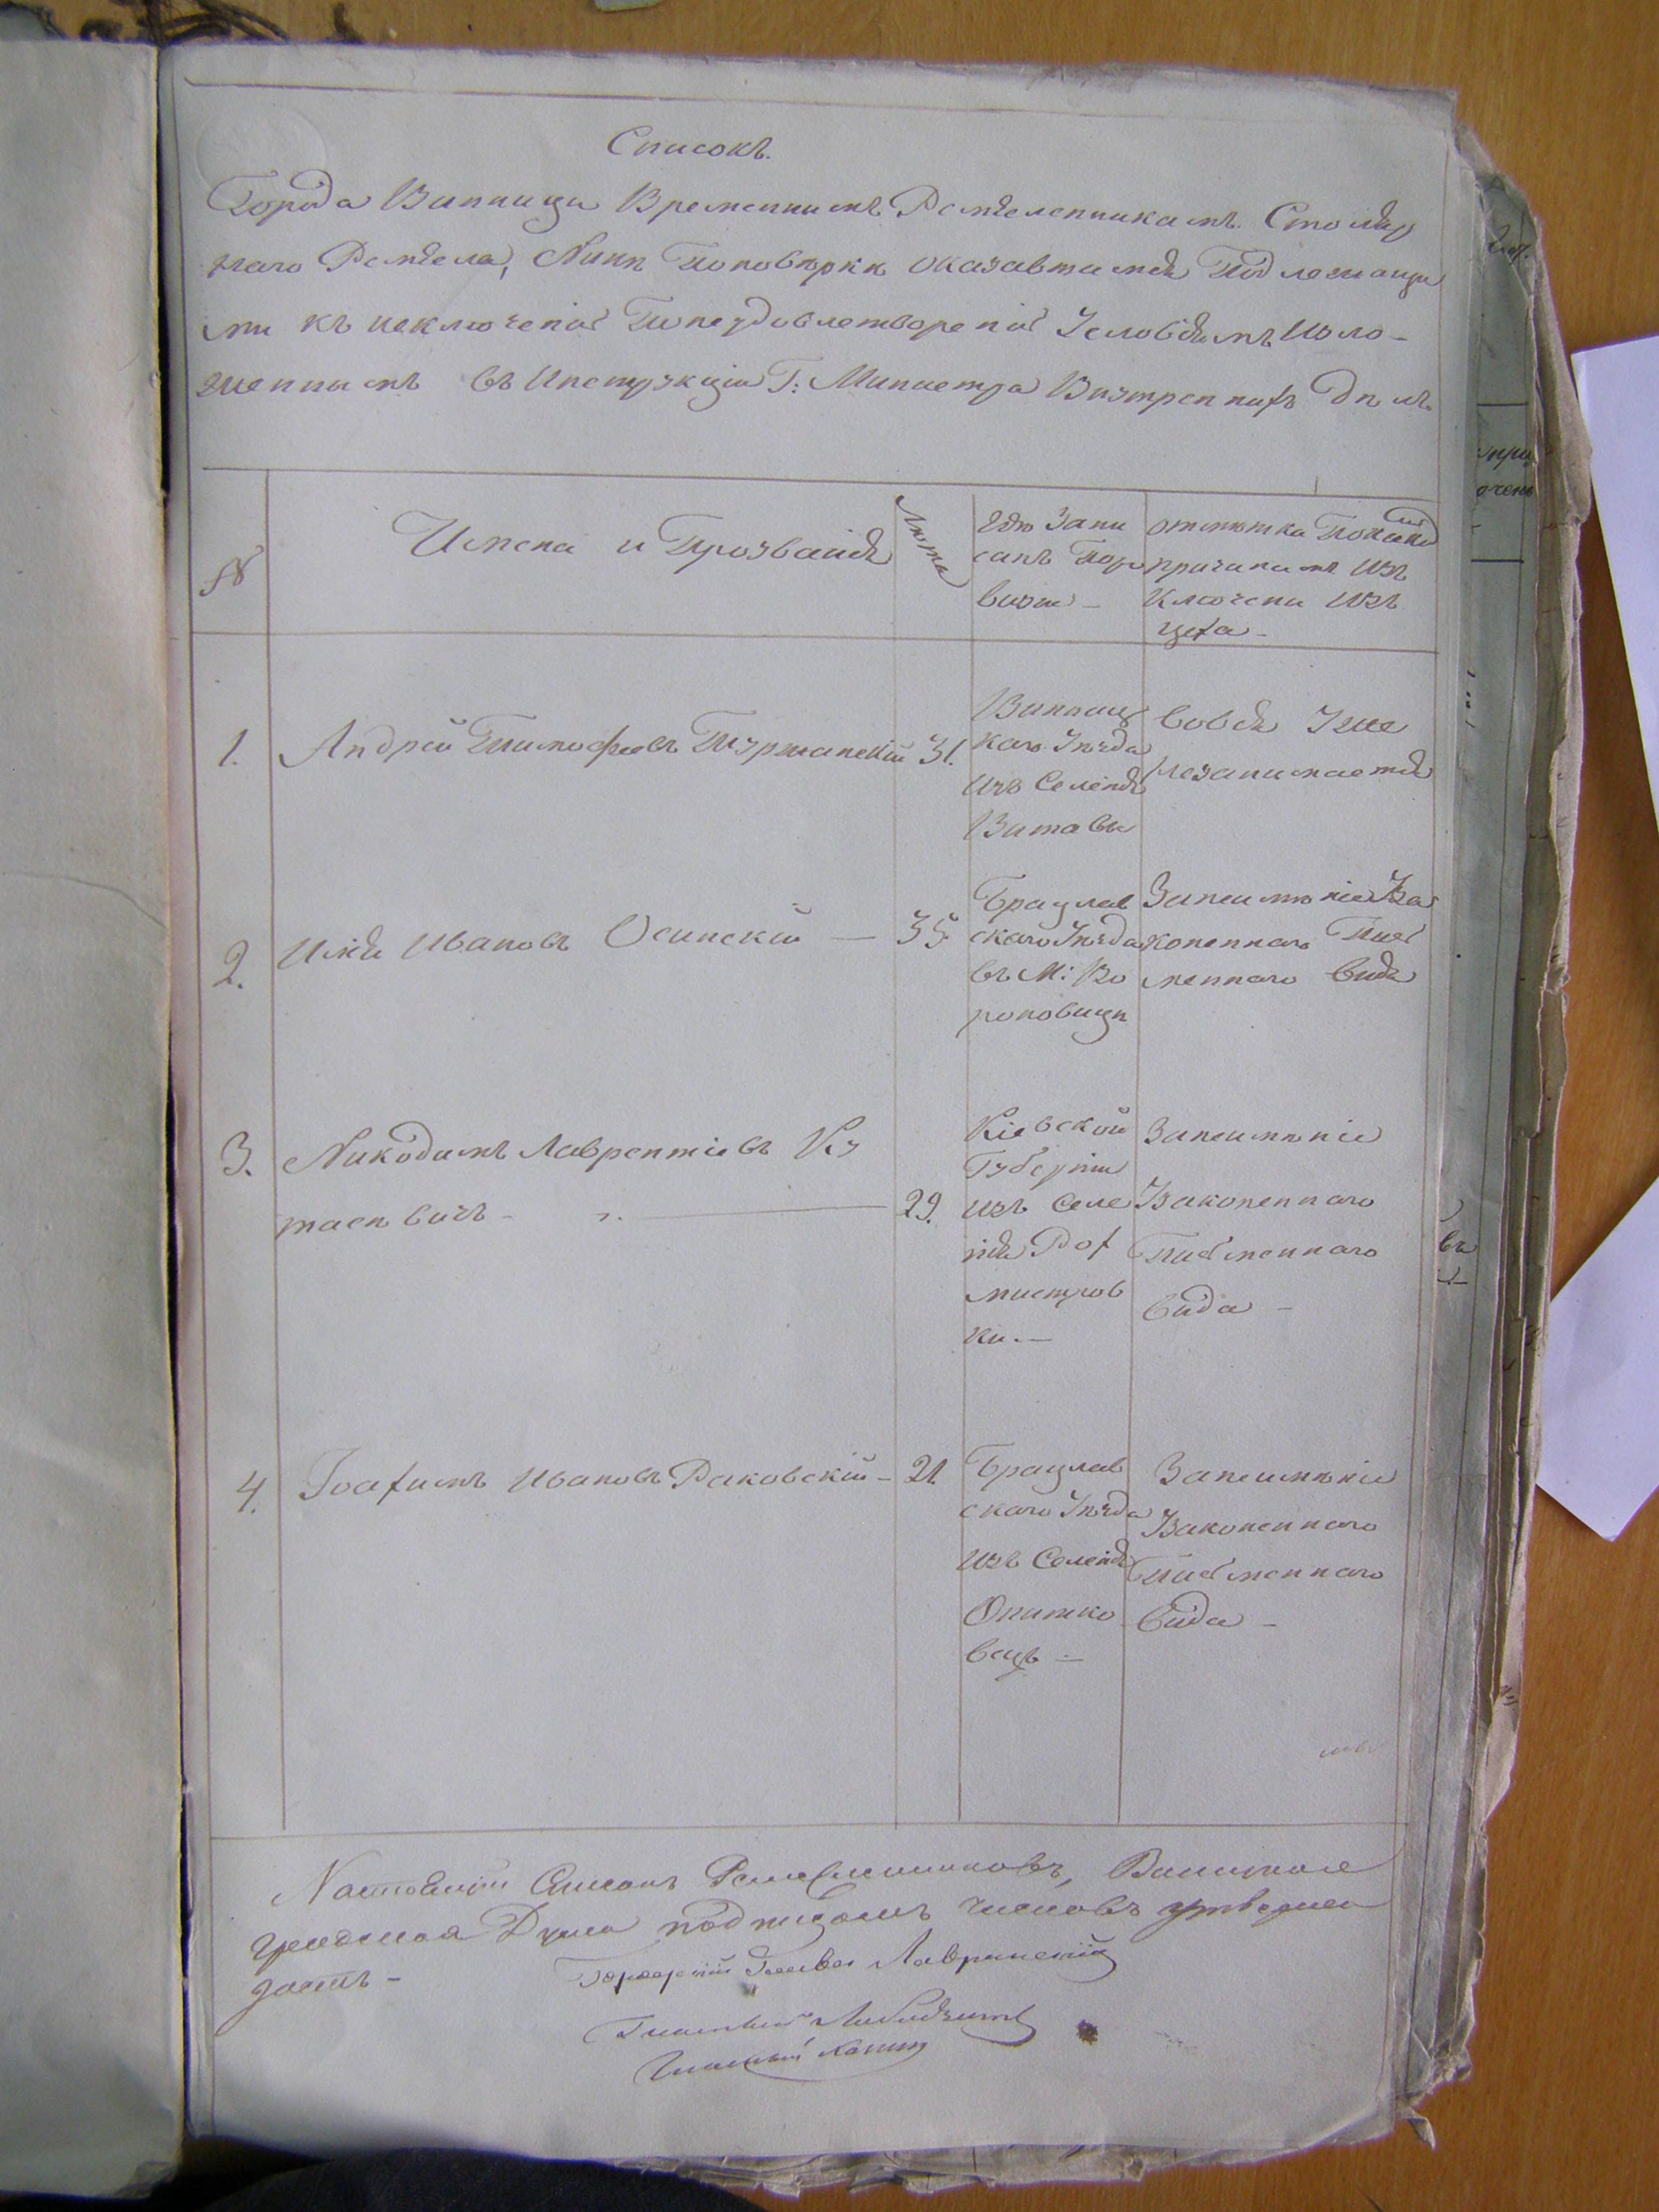 Списокъ.
Города Винници Временнимъ Ремесленникамъ. Столяр
наго Ремесла, Нинѣ поповѣрки оказавшимся Подлежащи
ми къ исключенію Понеудовлетворенію Условіямъ Изло-
женнимъ въ Инструкціи Г: Министра Внутреннихъ Дѣлъ
№
Имена и Прозванія
Лѣта
Где Запи
санъ Пор
визіи -
отмѣтка По какимъ
причинамъ Изъ
ключени Изъ
цеха -
1.
Андрей Тимофеевъ Туржанскій
31.
Винниц
каго Уѣзда
Изъ Селенія
Витави
вовся Уже
незанимается
2.
Илья Ивановъ Осинскій —
35
Брацлав
скаго Уѣзда
въ М: Во
роновици
Занеимѣніем За
коненнаго Пис
меннаго вида
3.
Никодимъ Лаврентіевъ Ку
таевичъ - —
29.
Кіевской
Губерніи
изъ Селе
нія Рох
мистров
ки. —
Занеимѣніе
Законеннаго
Писменнаго
вида -
4.
Іоахимъ Ивановъ Раковскій -
21
Брацлав
скаго Уѣзда
изъ Селенія
Опитко
вець —
Занеимѣніе
Законеннаго
Писменнаго
вида -
Настоящій Списокъ Ремесленниковъ, Винницкая
Градская Дума подписомъ членовъ утвержда
детъ -
Городскій Голова Лавринскій
Гласный
Гласный